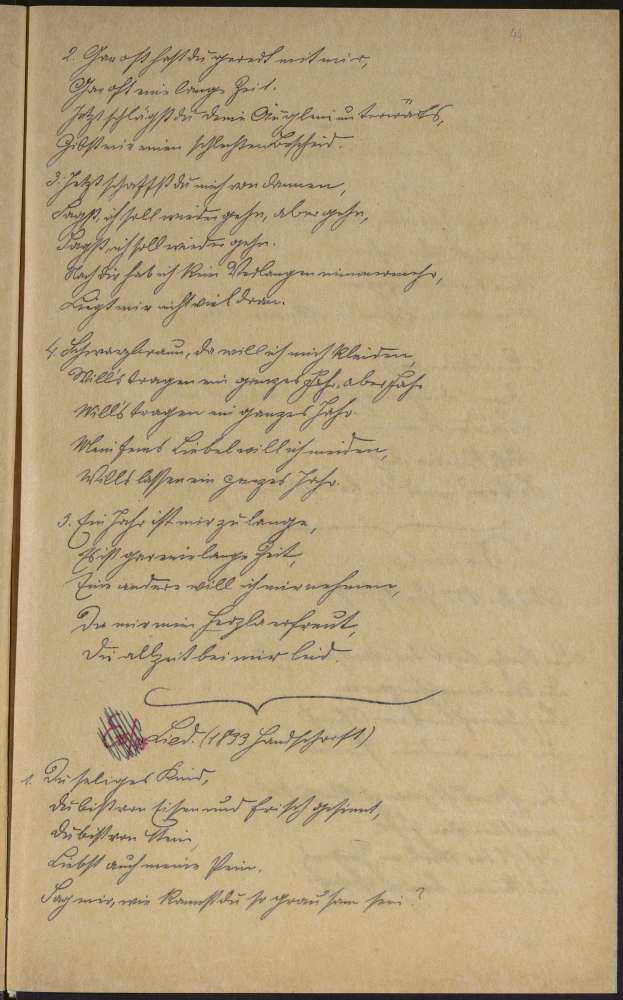 44
2. Gar oft hast du geredt mit mir,
Gar oft eine lange Zeit.
Jetzt schlägst du deine Äuglein unterwärts,
Gibst mir einen schlechten Bescheid.
3. Jetzt schaffst du mich von dannen,
Sagst, ich soll wieder gehn, aber gehn,
Sagst, ich soll wieder gehn.
Nach dir hab ich kein Verlangen nimmermehr,
Liegt mir nicht viel dran.
4. Schwarzbraun, da will ich mich kleiden,
Will's tragen ein ganzes Jahr, aber Jahr
Will's tragen ein ganzes Jahr.
Mein Liebel will ich meiden,
Will's lassen ein ganzes Jahr.
5. Ein Jahr ist mir zu lange,
Es ist gar eine lange Zeit,
Eine andere will ich mir nehmen,
Die mir mein Herzla erfreut,
Die allzeit bei mir leid.
Lied. (1833 Handschrift)
1. Du seliges Kind,
du bist von Eisen und frisch gesinnt,
du bist von Stein,
Liebst auch meine Pein.
Sag mir, wie kannst du so grausam sein?